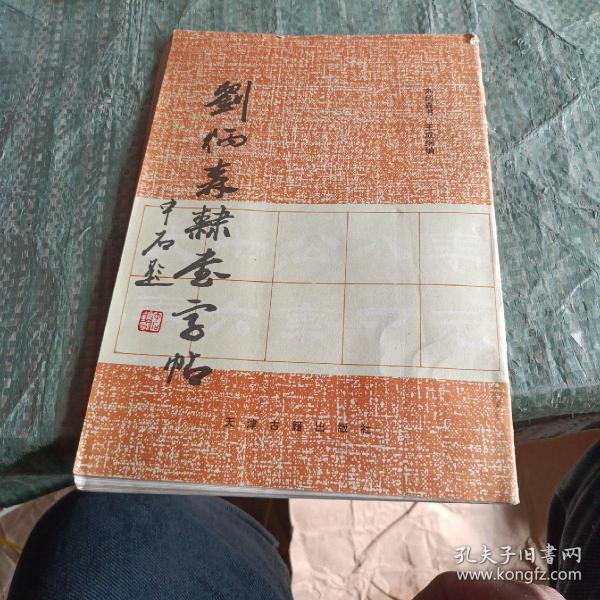 劉炳森隸書字帖
中石題
天津古籍出版社
孔夫子旧书网
www.kongfz.com